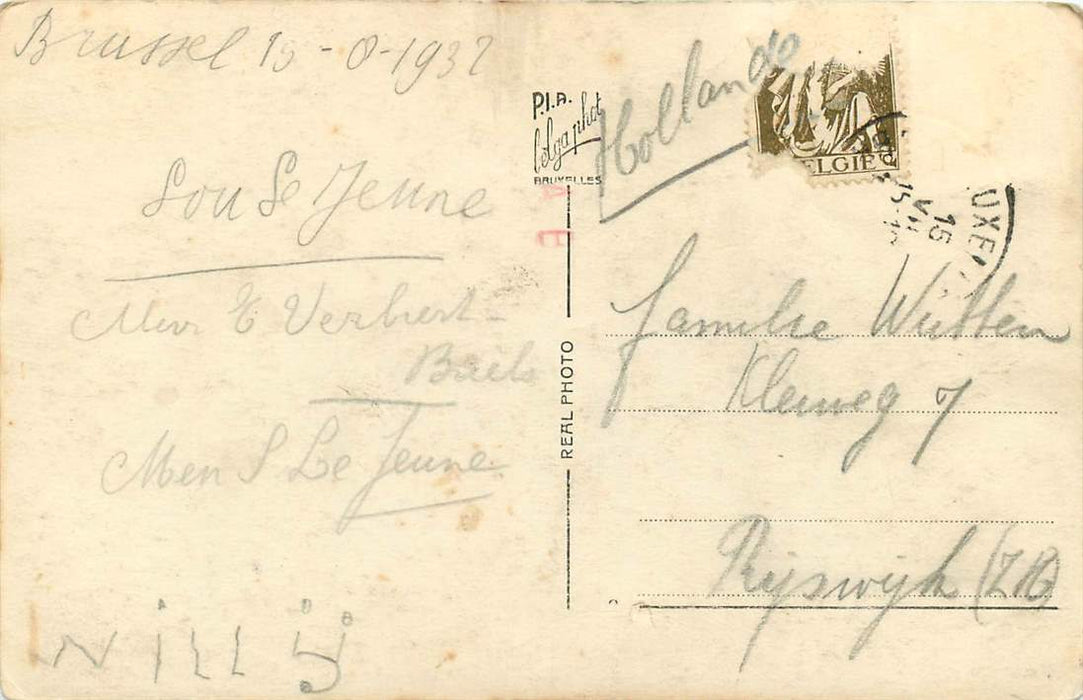 Brussel 15-8-1932
Lou Le Jeune
Mevr E Verbert-
Baels
Men S Le Jeune
Nilly
P.I.B.
belga phot
BRUXELLES
A E
REAL PHOTO
Hollande
BELGIE
15 VIII
15
UXEL
familie Witten
Kleiweg 7
Rijswijk (ZH)